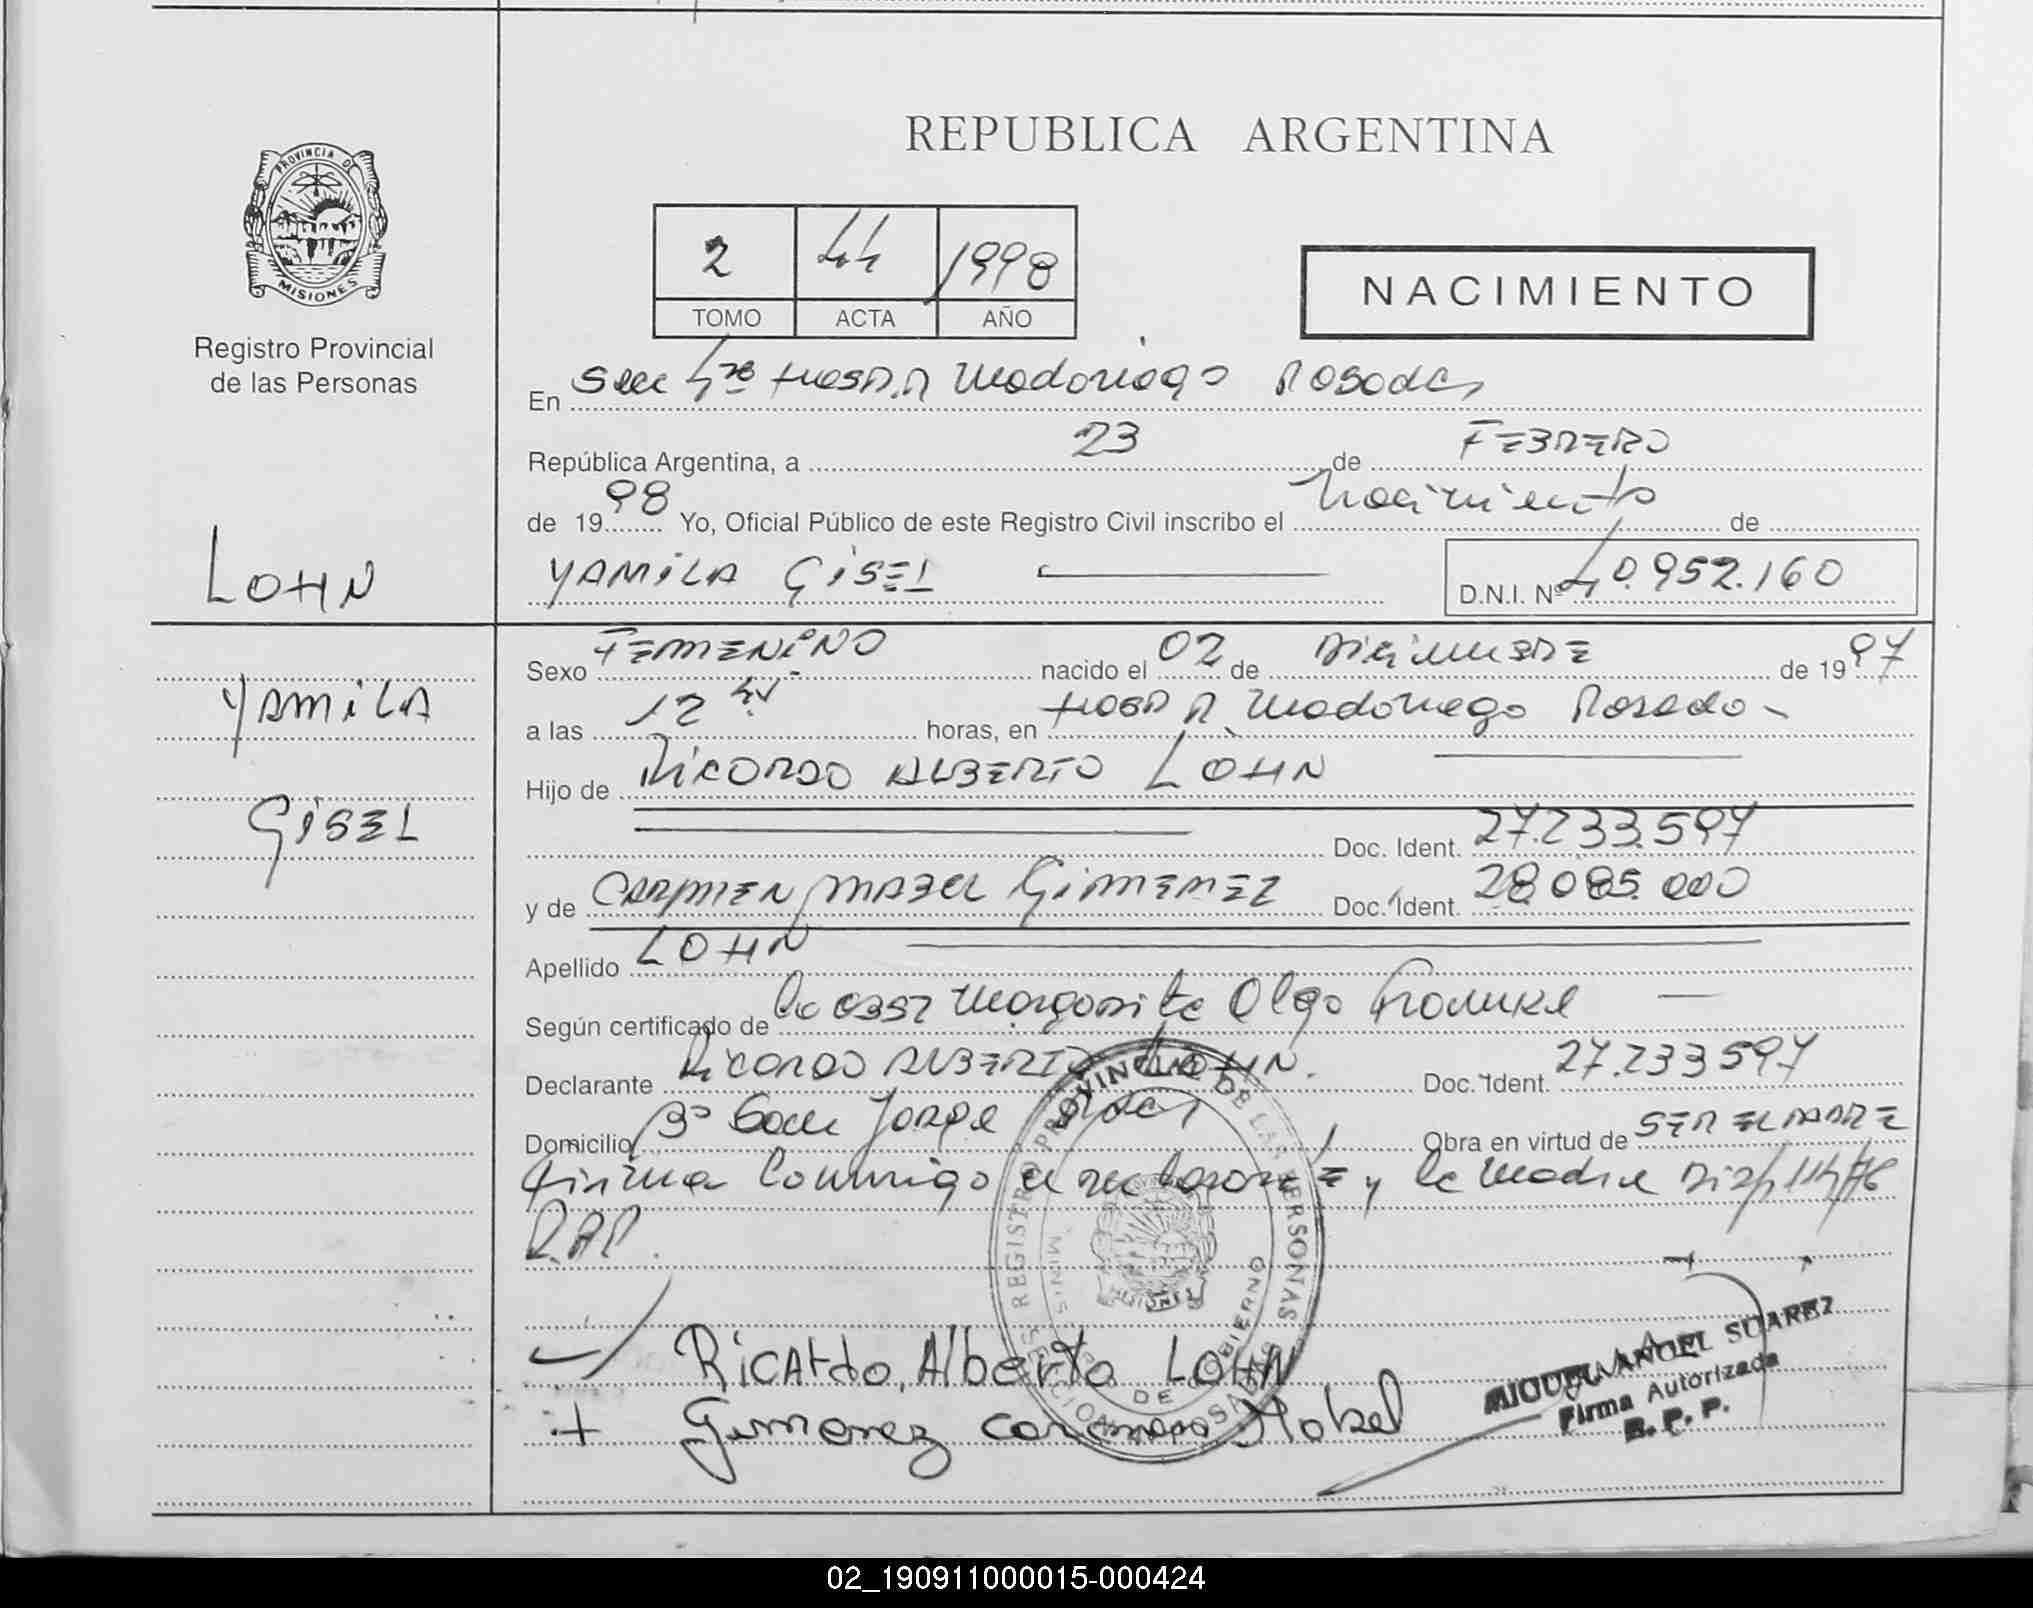 REPUBLICA ARGENTINA
PROVINCIA DE
MISIONES
Registro Provincial
de las Personas
2 44 1998
TOMO ACTA AÑO
NACIMIENTO
En Posadas
República Argentina, a 23 de FEBRERO
de 1998 Yo, Oficial Público de este Registro Civil inscribo el Nacimiento de
YAMILA GISEL D.N.I. Nº 40.952.160
LOHN
YAMILA
GISEL
Sexo FEMENINO nacido el 02 de DICIEMBRE de 1997
a las 12 hs horas, en Hosp R. Madariaga Posadas
Hijo de RICARDO ALBERTO LOHN
Doc. Ident. 27.233.597
y de CARMEN MABEL GIMENEZ Doc. Ident. 28.085.000
Apellido LOHN
Según certificado de la Obst Margarita Olga
Declarante RICARDO ALBERTO LOHN. Doc. Ident. 27.233.597
Domicilio Bº San Jorge Pdas Obra en virtud de SER EL PADRE
Firma conmigo el declarante y la madre
Ricardo, Alberto LOHN
Gimenez Carmen Mabel
REGISTRO PROVINCIAL DE LAS PERSONAS
DE GOBIERNO
MIGUEL ANGEL SUAREZ
Firma Autorizada
R. P. P.
02_190911000015-000424